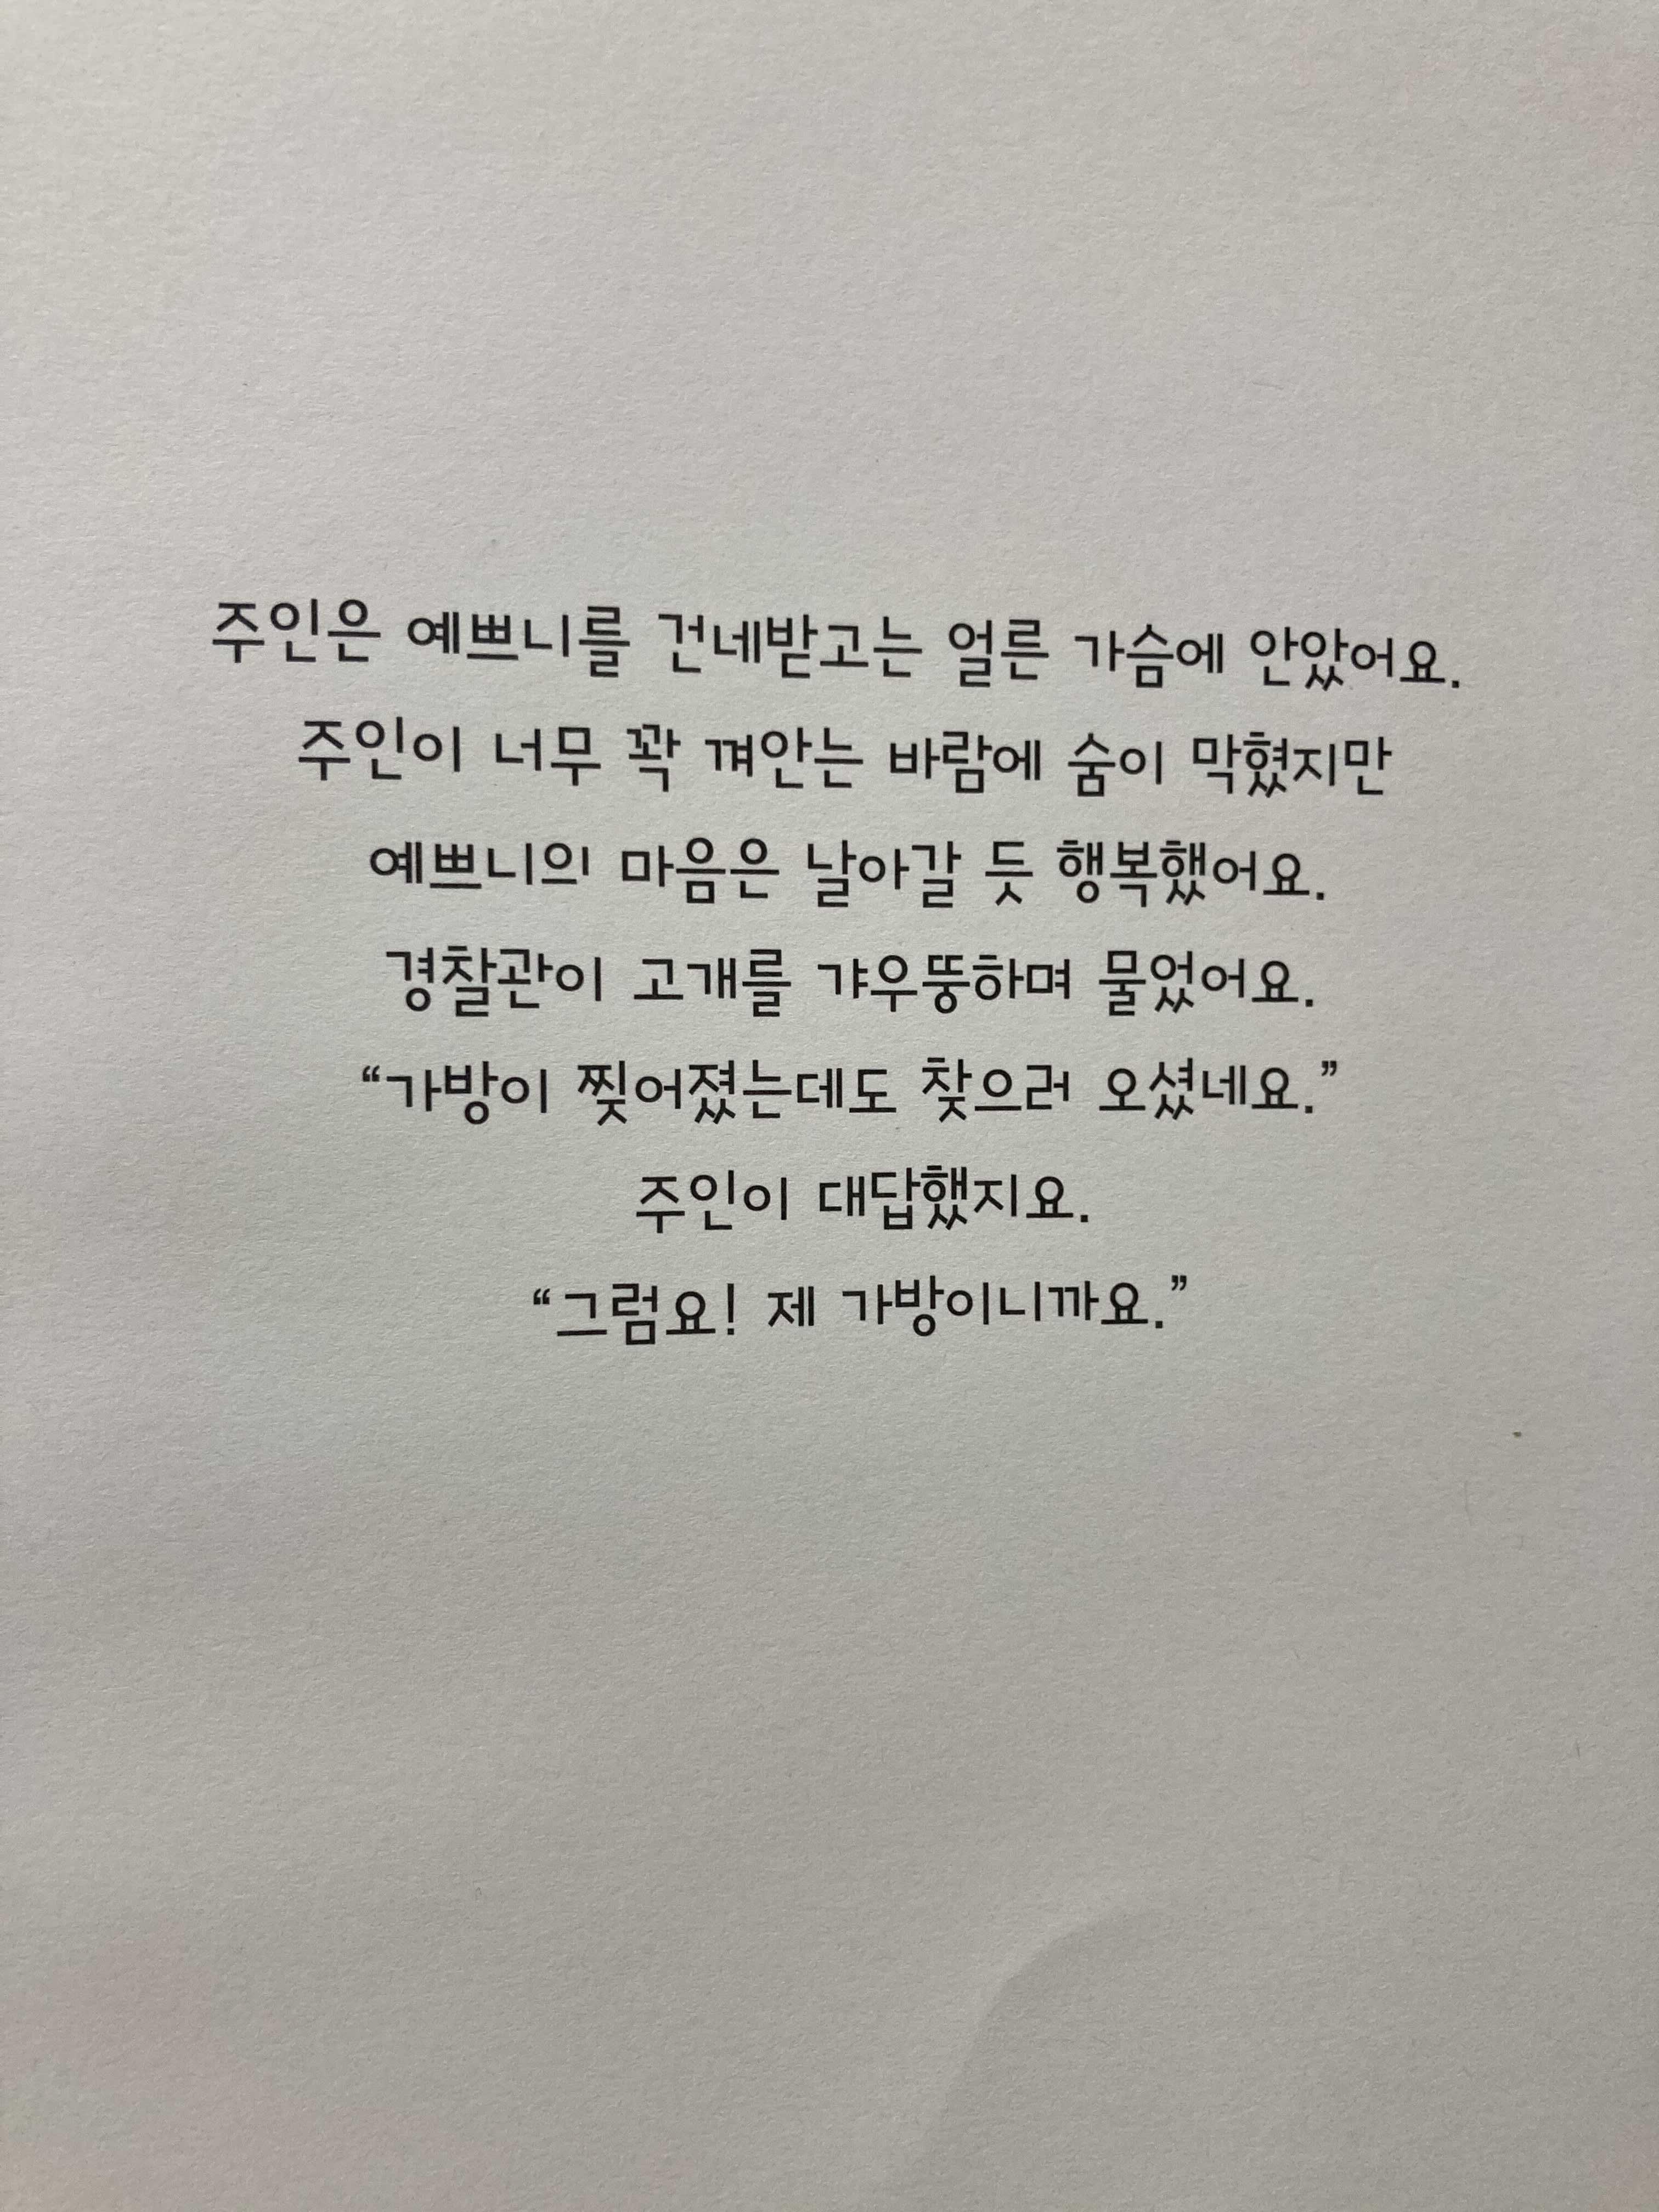 주인은 예쁘니를 건네받고는 얼른 가슴에 안았어요.
주인이 너무 꽉 껴안는 바람에 숨이 막혔지만
예쁘니의 마음은 날아갈 듯 행복했어요.
경찰관이 고개를 갸우뚱하며 물었어요.
“가방이 찢어졌는데도 찾으러 오셨네요.”
주인이 대답했지요.
“그럼요! 제 가방이니까요.”